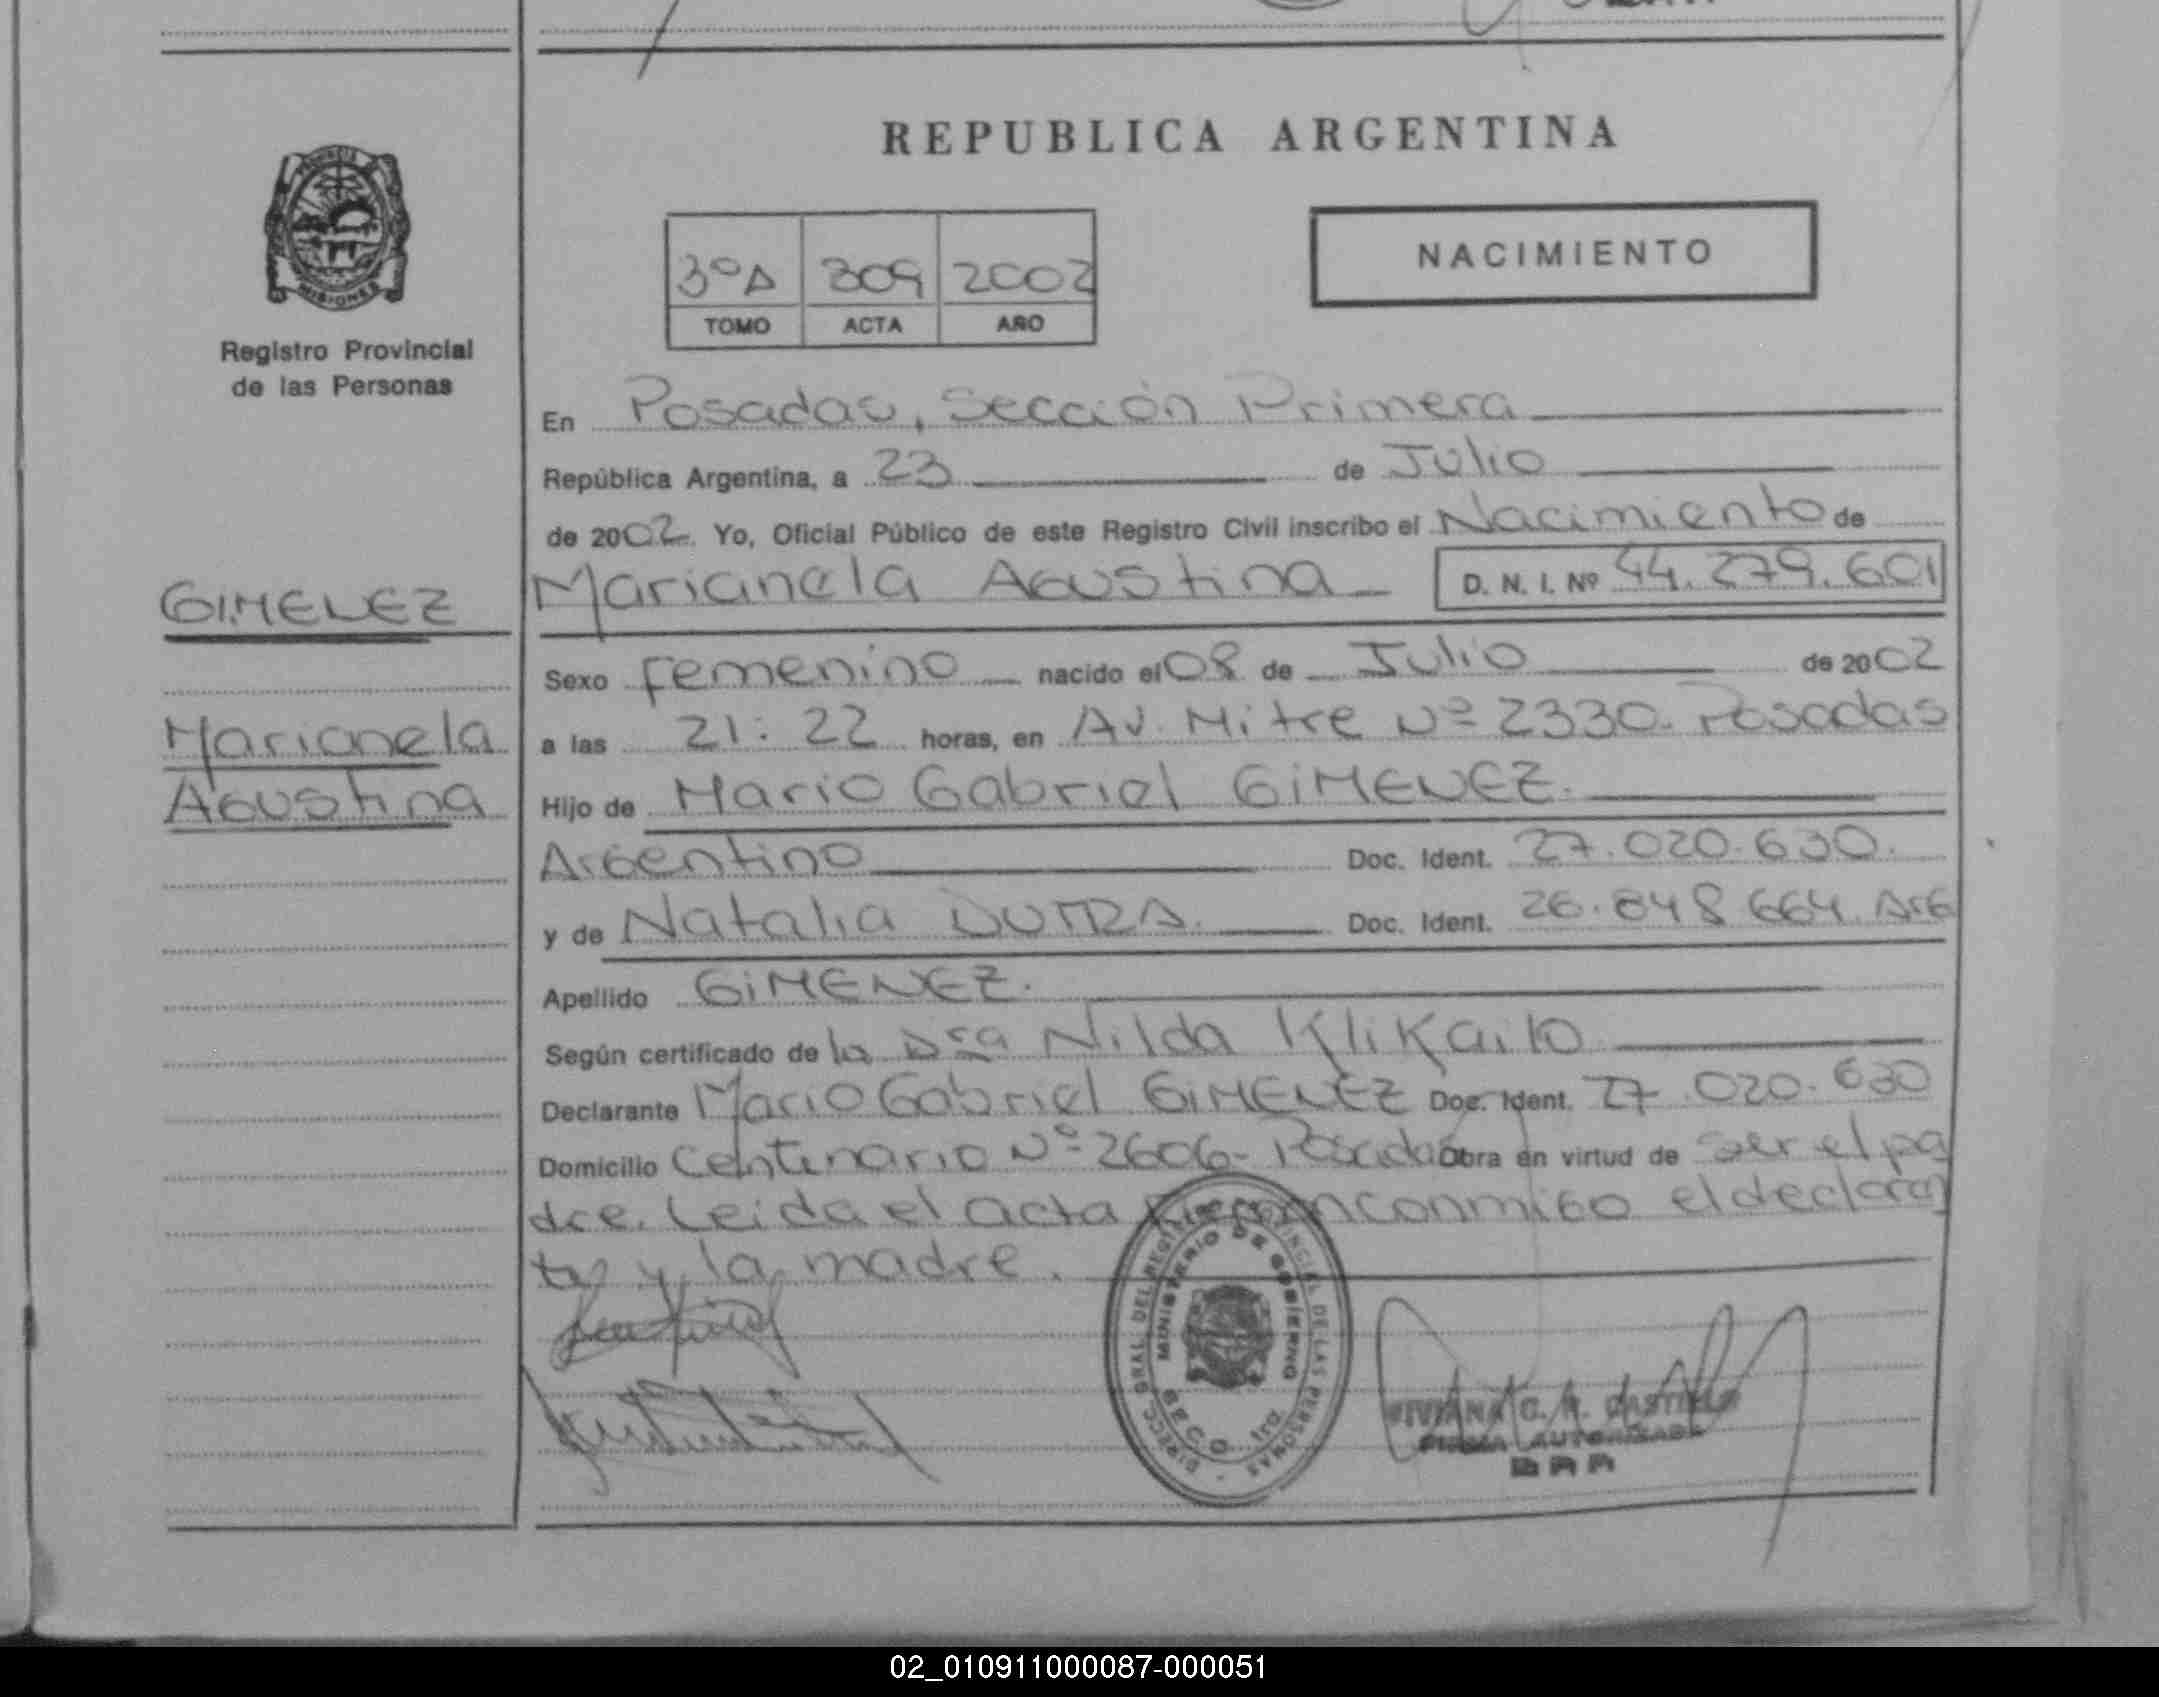 REPUBLICA ARGENTINA
PROVINCIA
MISIONES
Registro Provincial
de las Personas
3º A 309 2002
TOMO ACTA AÑO
NACIMIENTO
En Posadas, Sección Primera
República Argentina, a 23 de Julio
de 2002. Yo, Oficial Público de este Registro Civil inscribo el Nacimiento de
GIMENEZ
Marianela Agustina D. N. I. Nº 44.279.601
Sexo femenino nacido el 08 de Julio de 2002
Marianela
a las 21:22 horas, en Av. Mitre Nº 2330. Posadas
Agustina
Hijo de Mario Gabriel GIMENEZ.
Argentino Doc. Ident. 27.020.630.
y de Natalia DUTRA. Doc. Ident. 26.848.664. Arg
Apellido GIMENEZ.
Según certificado de la Dra Nilda Klikailo
Declarante Mario Gabriel GIMENEZ Doc. Ident. 27.020.630
Domicilio Centenario Nº 2606- Posadas Obra en virtud de ser el pa
dre. Leida el acta firman conmigo el declaran
te y la madre.
DIRECC. GRAL DEL REGISTRO PROVINCIAL DE LAS PERSONAS
MINISTERIO DE GOBIERNO
VIVIANA C. A.
FIRMA AUTORIZADA
02_010911000087-000051